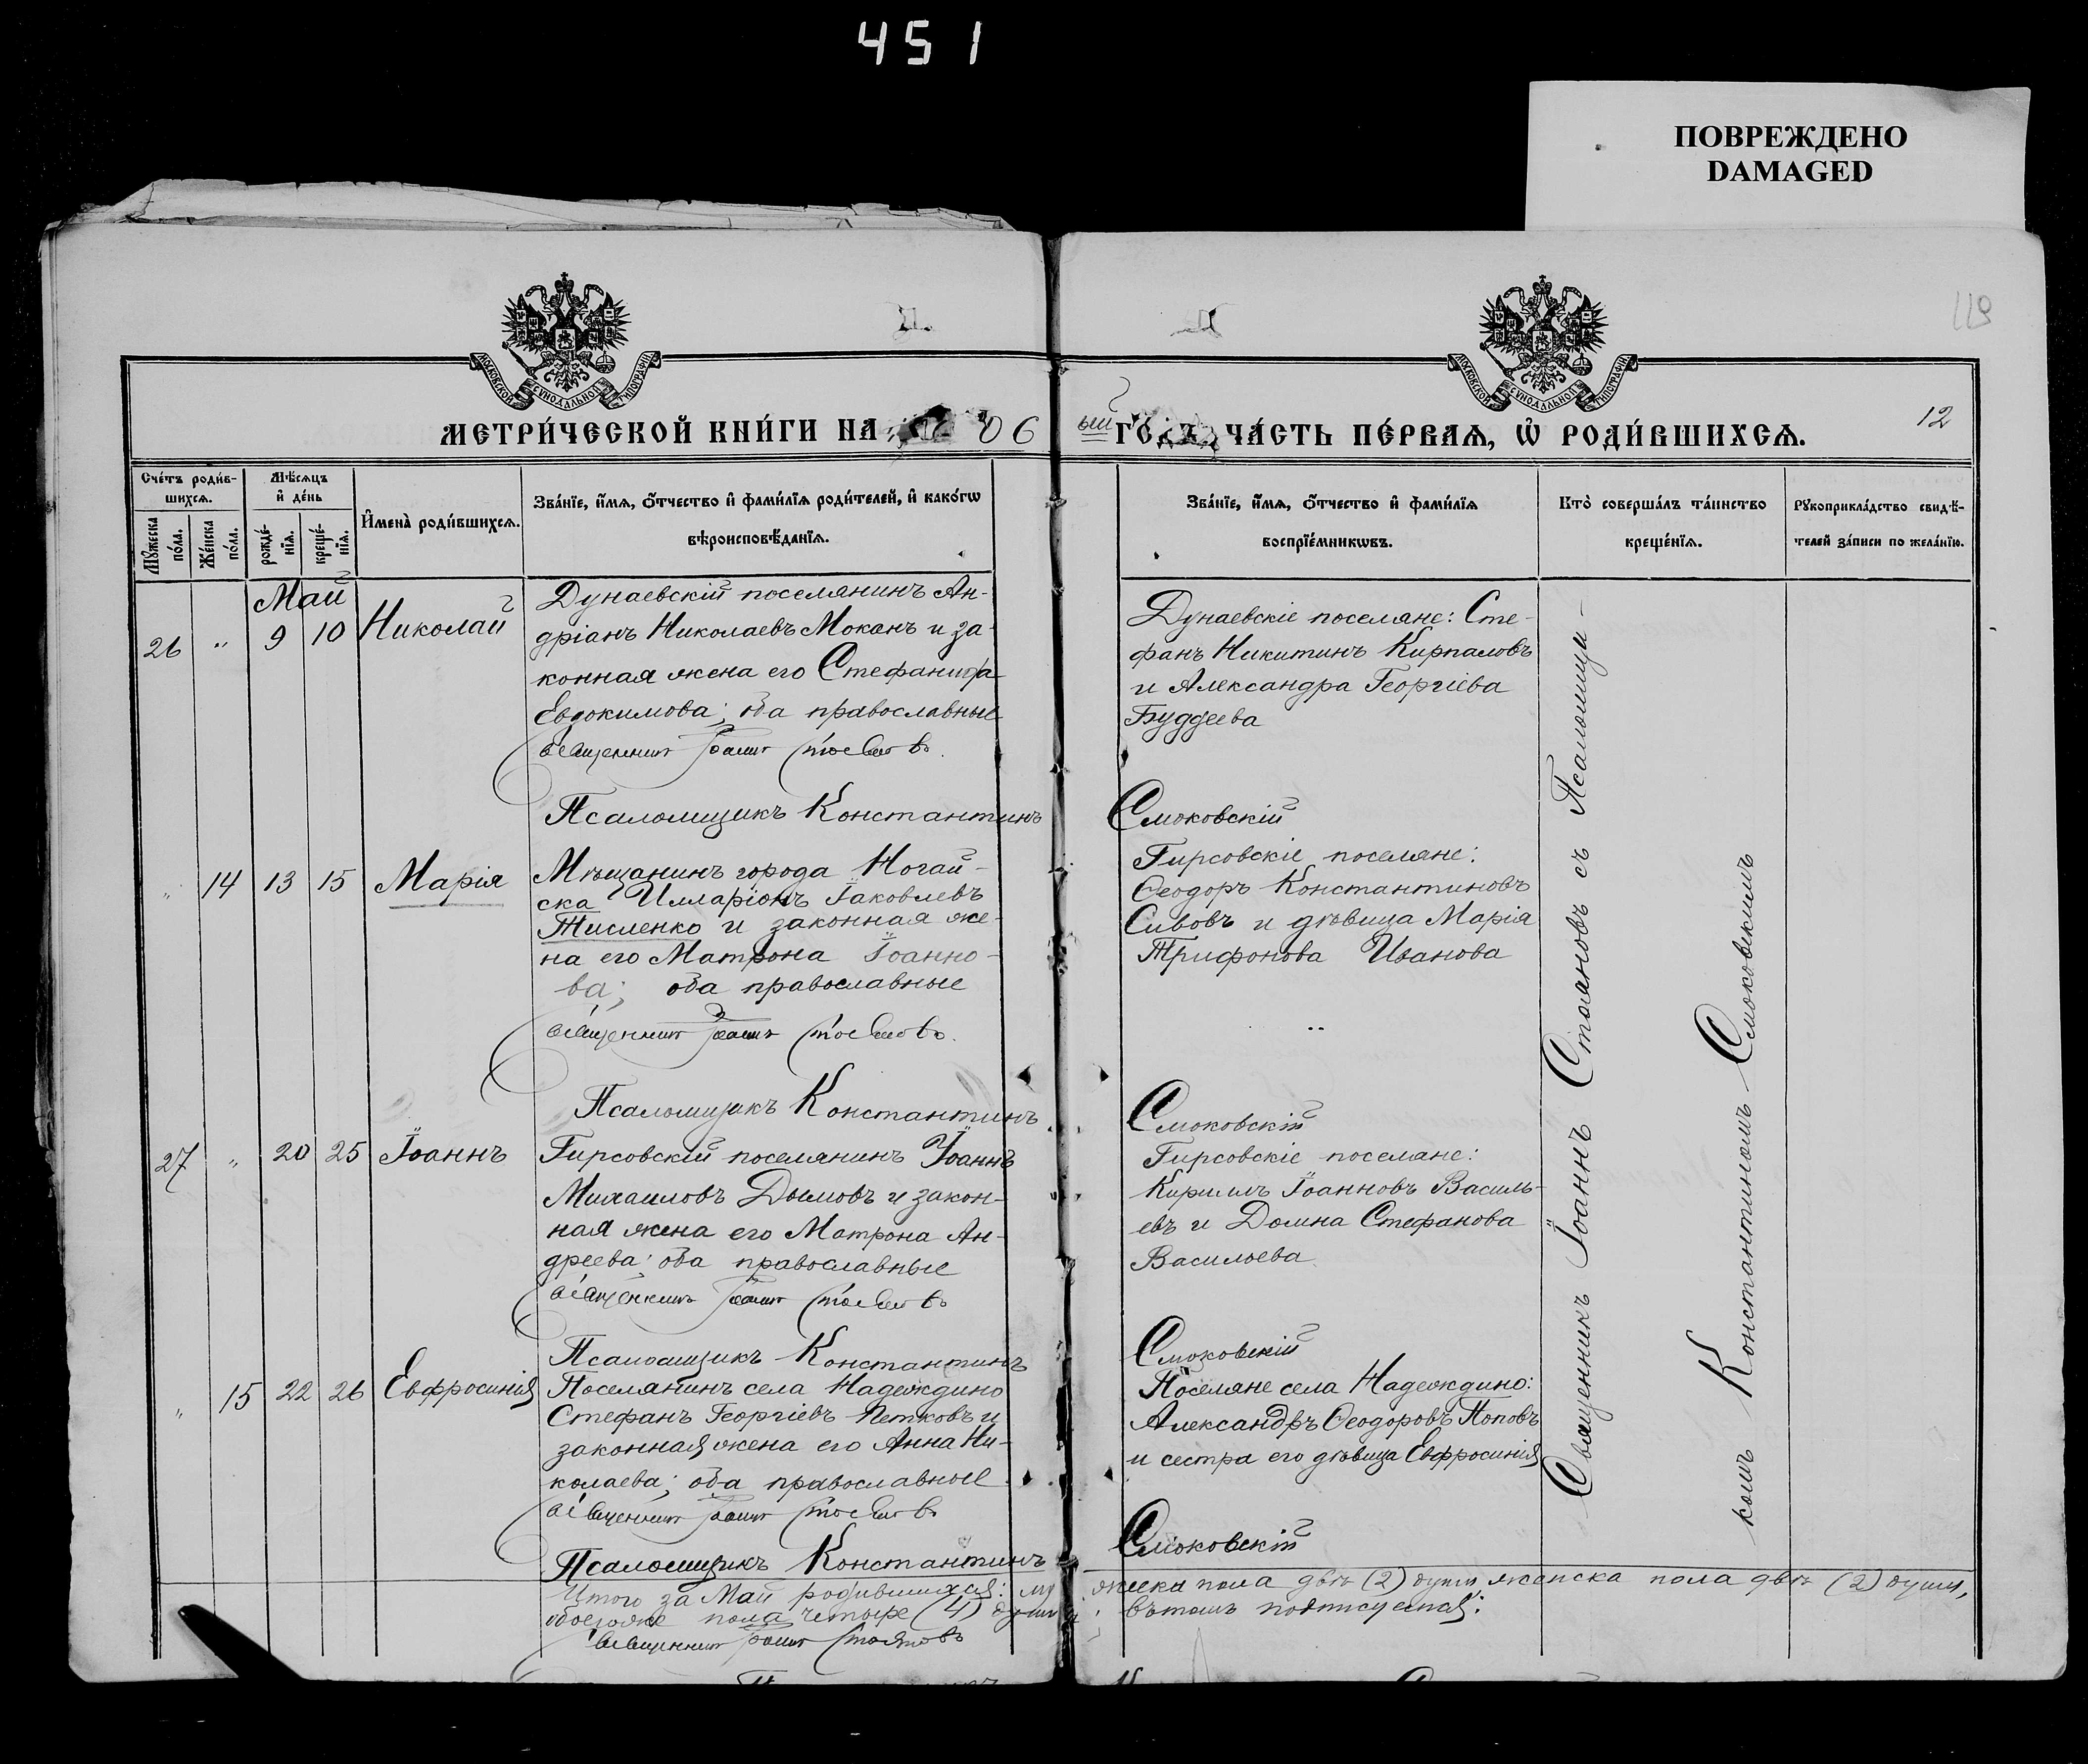 451
ПОВРЕЖДЕНО
DAMAGED
119
МОСКОВСКОЙ СѴНОДАЛЬНОЙ ТИПОГРАФІИ
МОСКОВСКОЙ СѴНОДАЛЬНОЙ ТИПОГРАФІИ
МЕТРИ́ЧЕСКОЙ КНИ́ГИ НА 06
ый ГОДЪ ЧА́СТЬ ПЕ́РВАѦ, Ѡ РОДИ́ВШИХСѦ.
12
Сче́тъ роди́в-
шихсѧ.
Мꙋ́жеска по́ла.
Же́нска по́ла.
Мѣ́сѧцъ
и҆ де́нь
рожде́-
нїѧ.
креще́-
нїѧ.
И҆мена̀ роди́вшихсѧ.
Зва́нїе, и҆́мѧ, ѻ҆́тчество и҆ фами́лїѧ роди́телей, и҆ како́гѡ
вѣроисповѣ́данїѧ.
Зва́нїе, и҆́мѧ, ѻ҆́тчество и҆ фами́лїѧ
воспрїе́мникѡвъ.
Кто̀ соверша́лъ та́инство
креще́нїѧ.
Рꙋкоприкла́дство свидѣ́-
телей за́писи по жела́нїю.
Май
26 „ 9 10 Николай
Дунаевскій поселянинъ Ан-
дріанъ Николаевъ Моканъ и за-
конная жена его Стефанида
Евдокимова; оба православные
Священникъ Іоаннъ Стояновъ.
Псаломщикъ Константинъ
Дунаевскіе поселяне: Сте-
фанъ Никитинъ Кирпаловъ
и Александра Георгіева
Буддеева
Смоковскій
„ 14 13 15 Марія
Мѣщанинъ города Ногай-
ска Илларіонъ Іаковлевъ
Тисленко и законная же-
на его Матрона Іоанно-
ва; оба православные
Священникъ Іоаннъ Стояновъ.
Псаломщикъ Константинъ
Гирсовскіе поселяне:
Ѳеодоръ Константиновъ
Сивовъ и дѣвица Марія
Трифонова Иванова
Смоковскій
27 „ 20 25 Іоаннъ
Гирсовскій поселянинъ Іоаннъ
Михаиловъ Дымовъ и закон-
ная жена его Матрона Ан-
дреева; оба православные
Священникъ Іоаннъ Стояновъ
Псаломщикъ Константинъ
Гирсовскіе поселяне:
Кириллъ Іоанновъ Василь-
евъ и Домна Стефанова
Васильева
Смоковскій
„ 15 22 26 Евфросинія
Поселянинъ села Надеждино
Стефанъ Георгіевъ Петковъ и
законная жена его Анна Ни-
колаева; оба православные
Священникъ Іоаннъ Стояновъ
Псаломщикъ Константинъ
Поселяне села Надеждино:
Александръ Ѳеодоровъ Поповъ
и сестра его дѣвица Евфросинія
Смоковскій
Священникъ Іоаннъ Стояновъ съ Псаломщи-
комъ Константиномъ Смоковскимъ
Итого за Май родившихся: мужеска пола двѣ (2) души, женска пола двѣ (2) души,
обоегоже пола четыре (4) души, въ томъ подписуемся:
Священникъ Іоаннъ Стояновъ